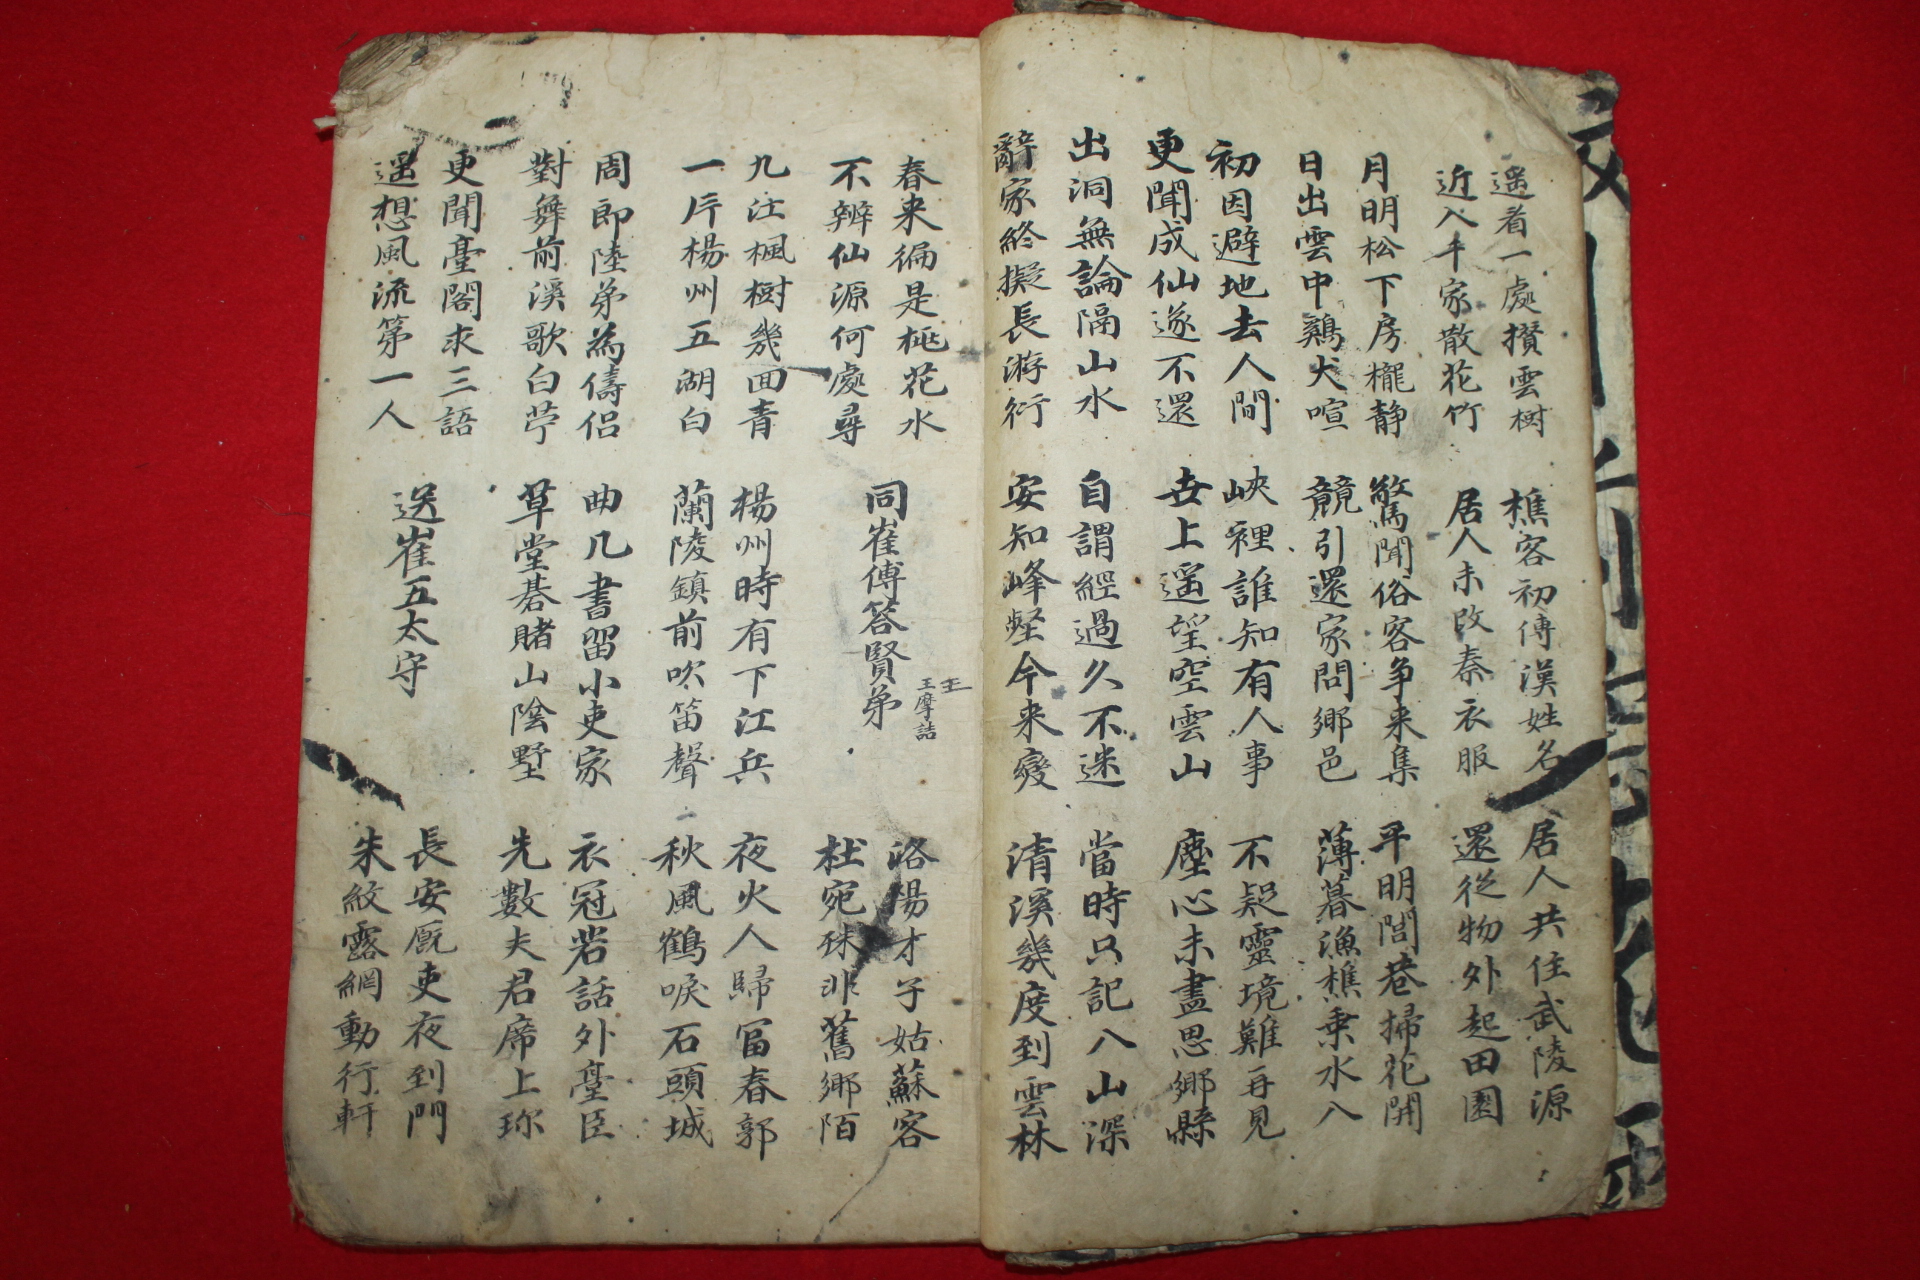 遥看一處攢雲樹
近入千家散花竹
樵客初傳漢姓名
居人未改秦衣服
居人共住武陵源
還從物外起田園
月明松下房櫳静
日出雲中鷄犬喧
驚聞俗客争来集
競引還家問鄉邑
平明閭巷掃花開
薄暮漁樵乗水入
初因避地去人間
更聞成仙遂不還
峡裡誰知有人事
世上遥望空雲山
不疑靈境難再見
塵心未盡思鄉縣
出洞無論隔山水
辭家終擬長游衍
自謂經過久不迷
安知峰壑今来變
當時只記入山深
清溪幾度到雲林
春来徧是桃花水
不辨仙源何處尋
同崔傅答賢弟
王
王摩詰
洛陽才子姑蘇客
杜宛殊非舊鄉陌
九注楓樹幾回青
一片楊州五湖白
楊州時有下江兵
蘭陵鎮前吹笛聲
夜火人歸冨春郭
秋風鶴唳石頭城
周郎陸弟為儔侶
對舞前溪歌白苧
曲几書留小吏家
草堂碁賭山陰墅
衣冠若話外臺臣
先數夫君席上珎
更聞臺閣求三語
遥想風流第一人
送崔五太守
長安厩吏夜到門
朱紋露網動行軒